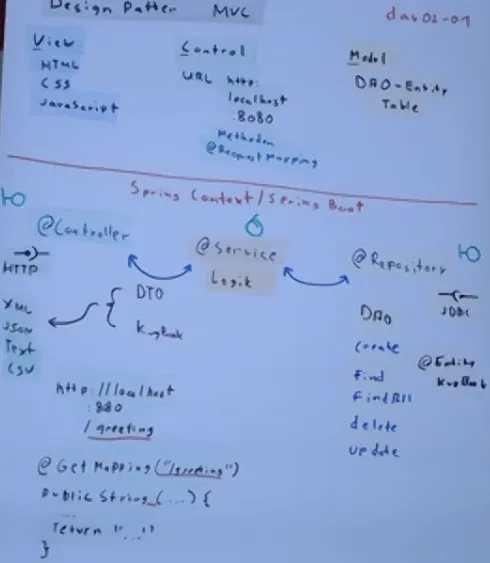 Design Patter MVC
das02-01
View
HTML
CSS
JavaScript
Control
URL http:
localhost
:8080
Methoden
@RequestMapping
Model
DAO-Entity
Table
Spring Context/Spring Boot
@Controller
HTTP
XML
JSON
Text
CSV
DTO
@Service
Logik
@Repository
JDBC
DAO
create
find
findAll
delete
update
@Entity
http://localhost
:880
/greeting
@GetMapping("/greeting")
public String (...) {
...
return "..."
}